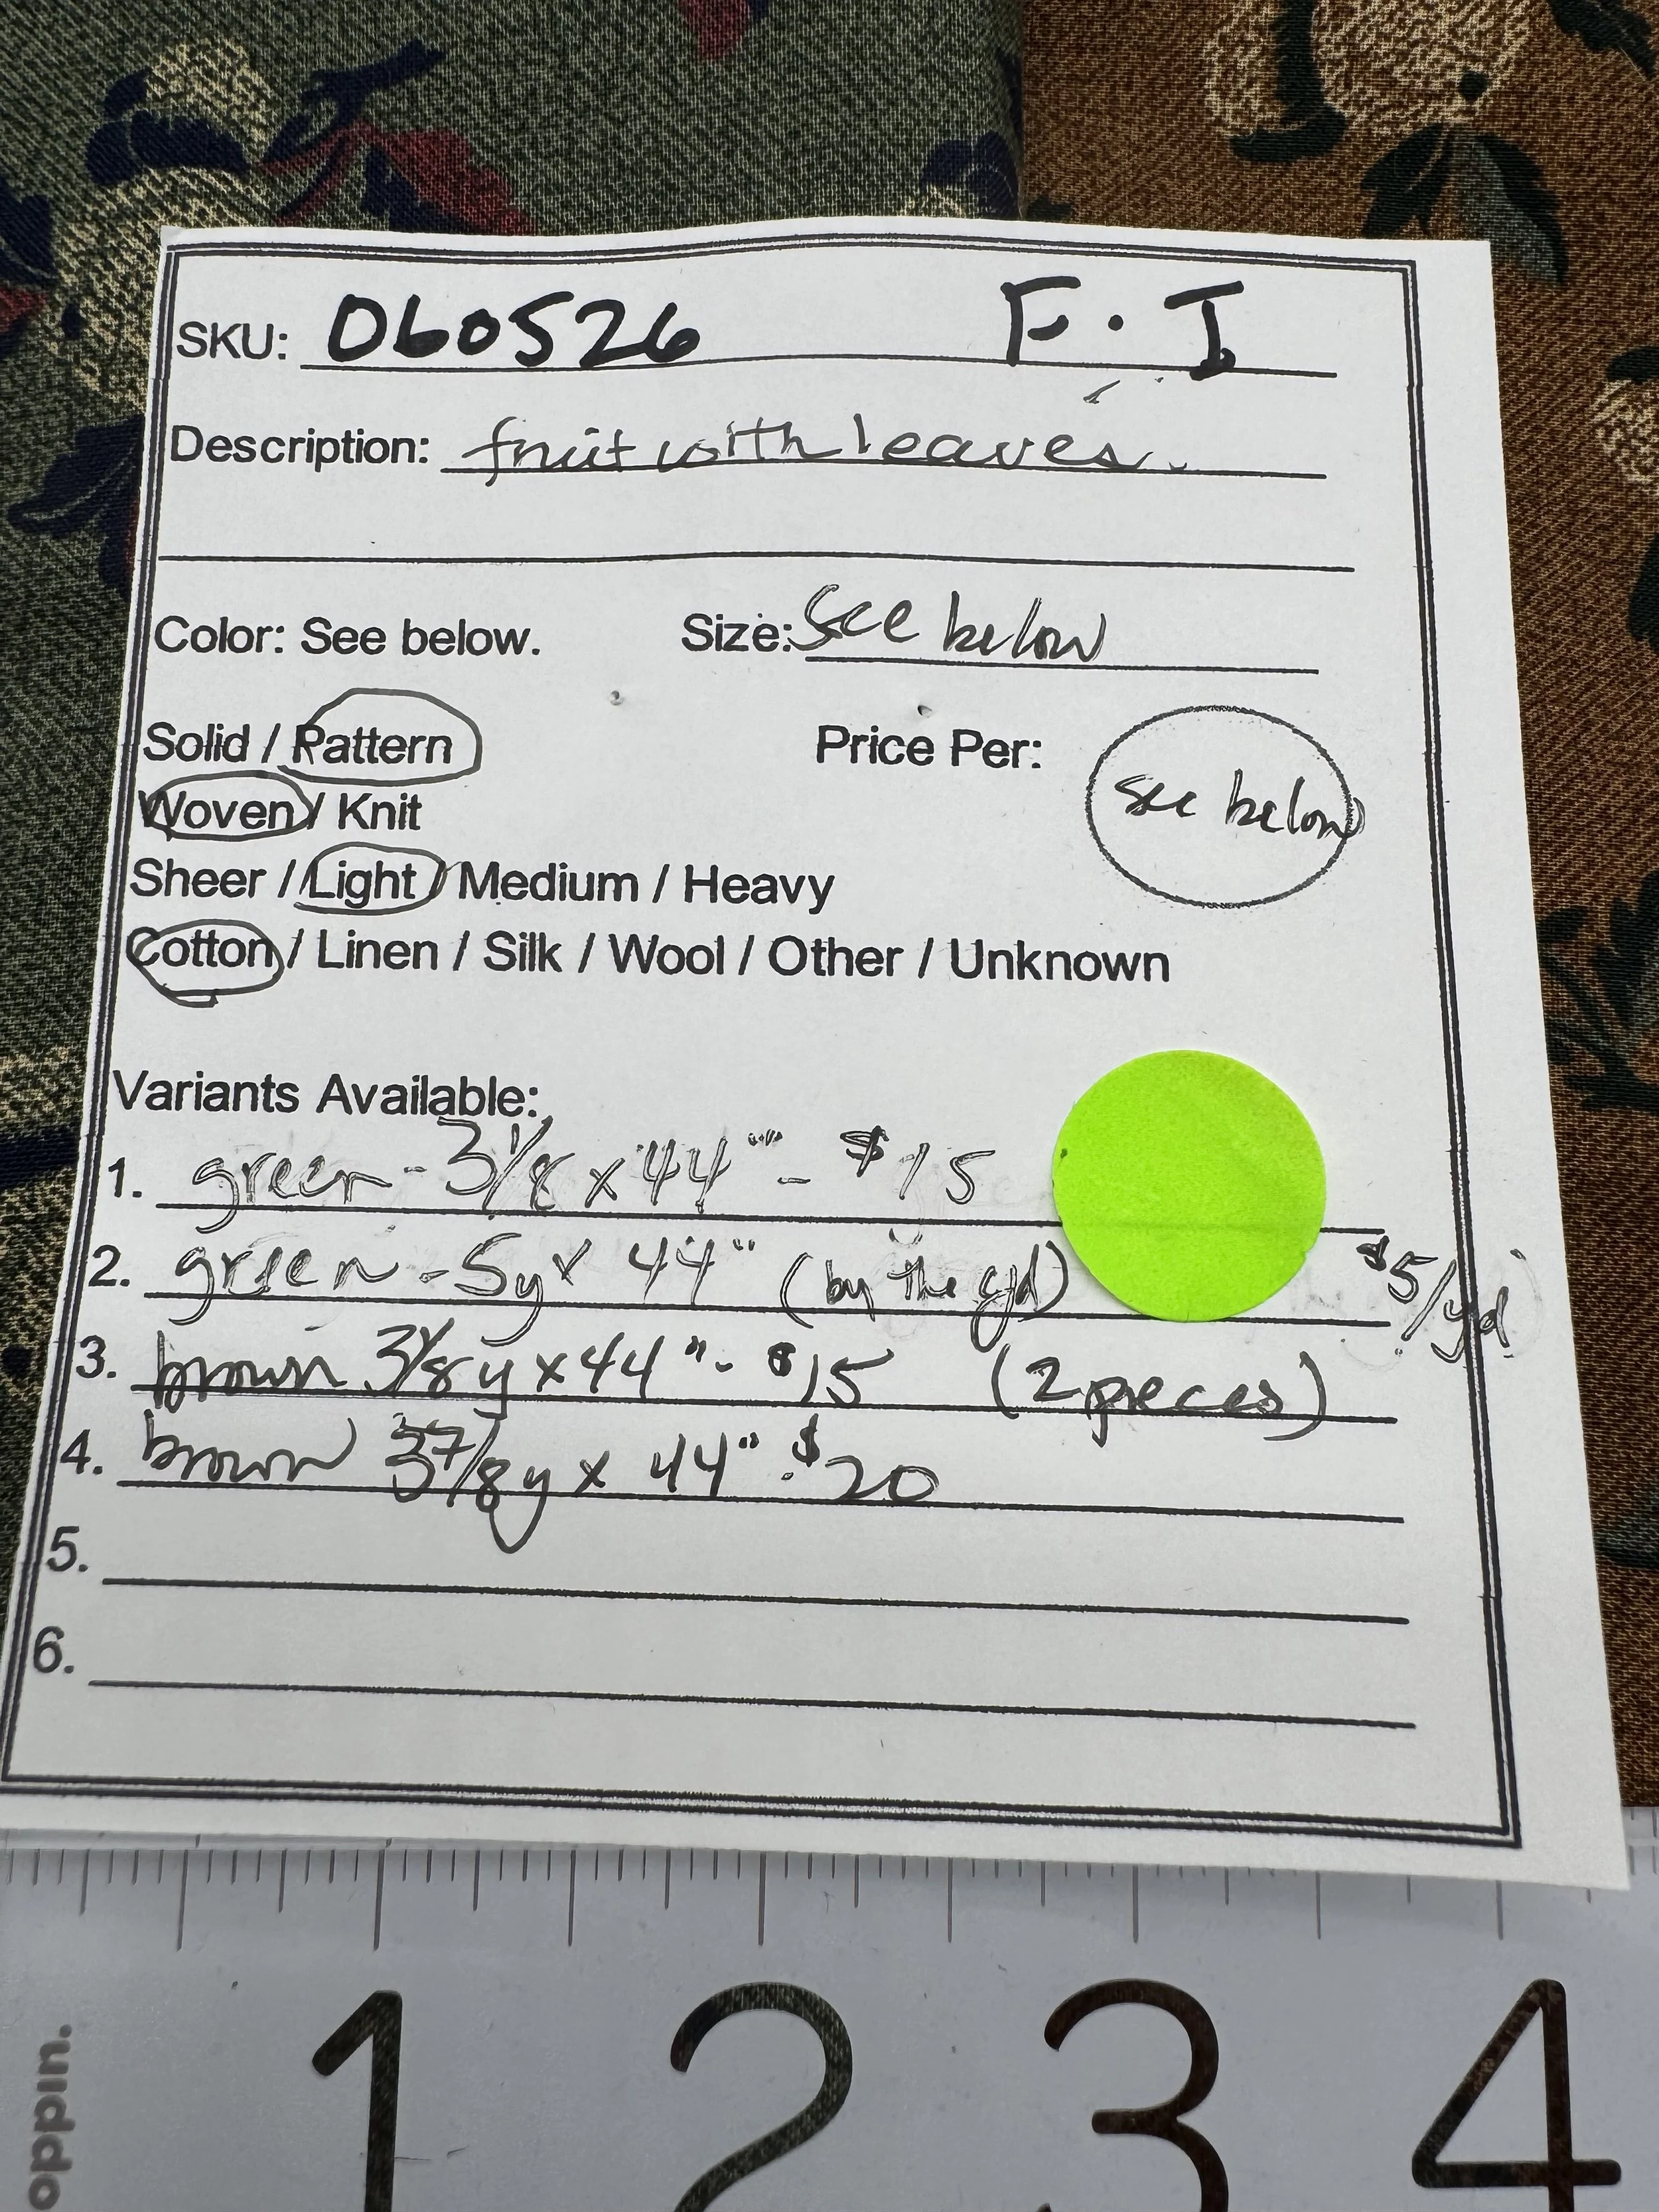 SKU: 060526 F.I
Description: fruit with leaves.
Color: See below. Size: See below
Solid / Pattern Price Per: see below
Woven / Knit
Sheer / Light / Medium / Heavy
Cotton / Linen / Silk / Wool / Other / Unknown
Variants Available:
1. green - 3 1/8 x 44" - $15
2. green - 5y x 44" (by the yd) $5/yd
3. brown 3 1/8 y x 44" - $15 (2 pieces)
4. brown 3 7/8 y x 44" - $20
5.
6.
1 2 3 4
oppin.